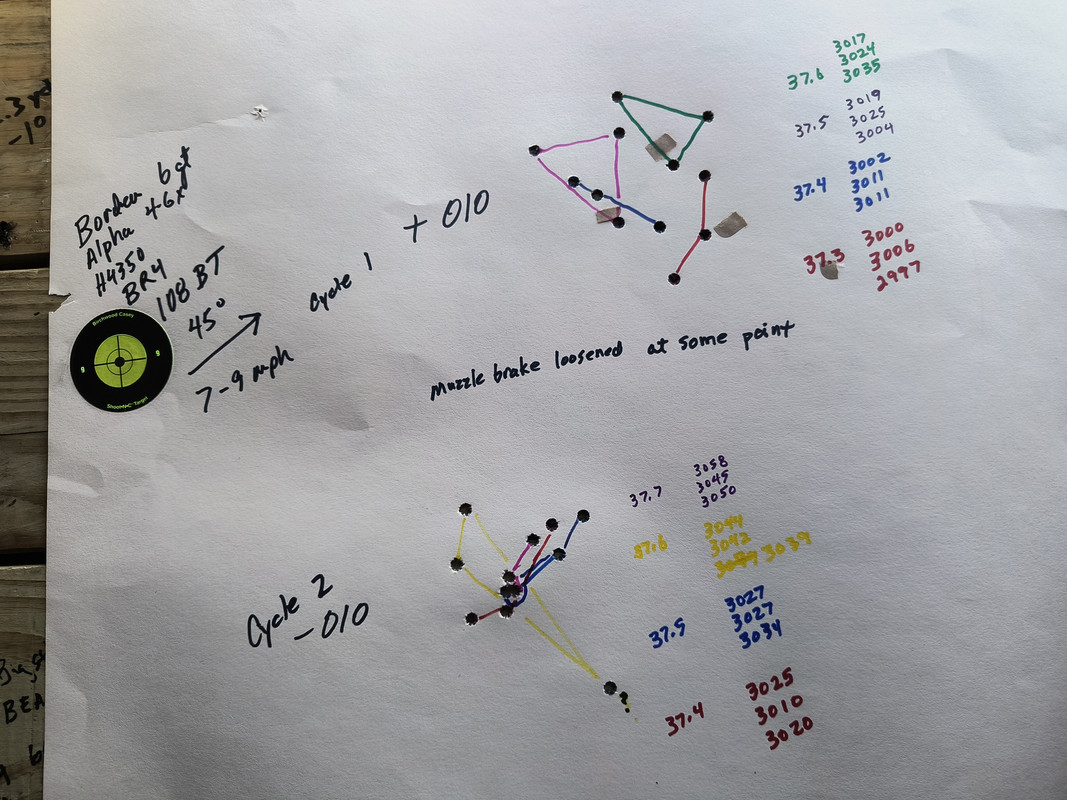 .3 yd
-1°
Borden 6gt
Alpha 46x
H4350
BR4
108 BT
45°
7-9 mph
Birchwood Casey
9 9
Shoot•N•C Target
Cycle 1
+ 010
37.6 3017
3024
3035
37.5 3019
3025
3004
37.4 3002
3011
3011
37.3 3000
3006
2997
muzzle brake loosened at some point
Cycle 2
-010
37.7 3058
3045
3050
37.6 3044
3042
3039
37.5 3027
3027
3034
37.4 3025
3010
3020
?
BEA